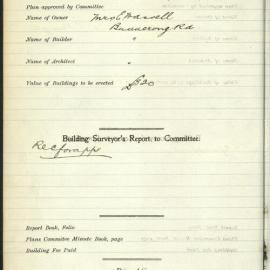 Plan approved by Committee
Name of Owner Mrs E Maxwell
Rd
Name of Builder "
Name of Architect "
Value of Buildings to be erected £20
Building Surveyor's Report to Committee.
Rec for app
Report Book, Folio
Plans Committee Minute Book, page
Building Fee Paid